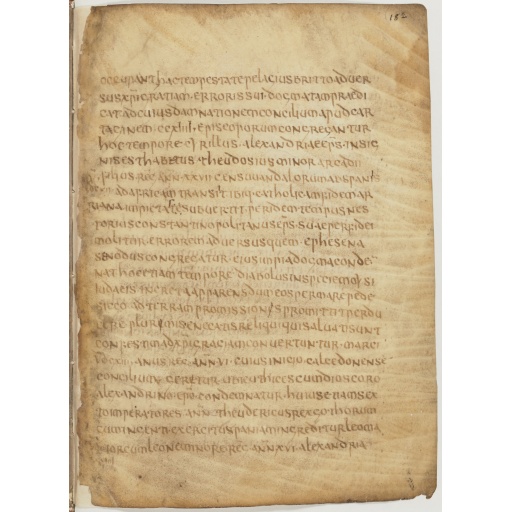 182
occupant hac tempestate pelagius britto adver
sus xpi gratiam erroris sui dogmata praedi
cat ad cuius damnationem concilium apud car
taginem ccxiiii episcoporum congregantur
hoc tempore cyrillus alexandriae eps insig
nis est habetus theudosius minor arcadii
filius reg ann xxvii gens uuandalorum ab spaniis
ad africam transit ibiq catholicam fidem ar
riana impietate subvertit per idem tempus nes
torius constantinopolitanus eps suae perfidei
molitur errorem adversus quem ephesena
senodus congregatur eius impia dogma condem
nat hoc etiam tempore diabolus in speciem moysi
iudaeis in creta apparens dum eos per mare pede
sicco ad terram promissionis promittit perdu
cere plurimis enecatis reliqui qui salvati sunt
confestim ad xpi graciam convertuntur marci
anus reg ann vi cuius inicio calcedonense
concilium geretur ubi euthices cum dioscoro
alexandrino epo condemnatur huius etiam sex
to imperatores anno theudericus rex gothorum
cum ingenti exercitu spaniam ingreditur leo ma
ior cum leone minore reg ann xvi alexandria